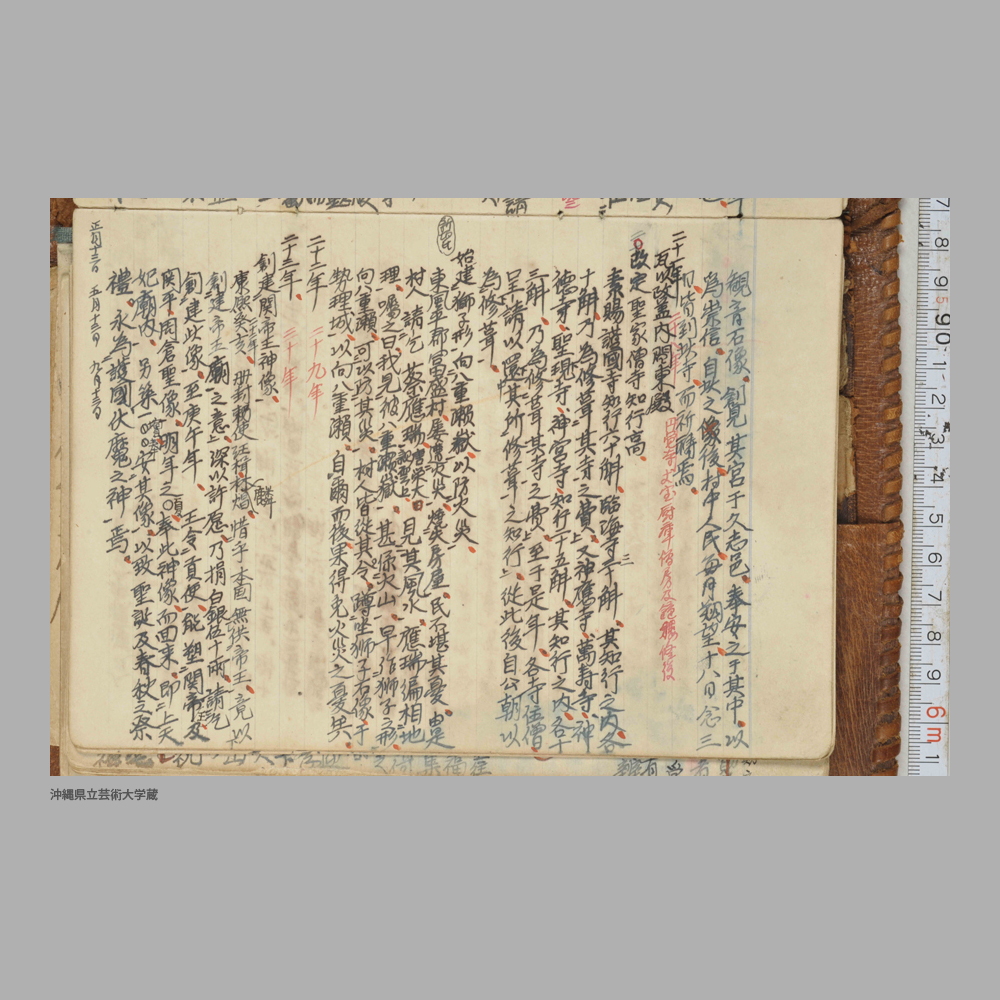 観音石像、創見其宮于久志邑、奉安之于其中、以
為崇信、自以之後村中人民、毎月朔望十八日念三
日、皆到于而所焉。
二十年
瓦改葺内関東殿
改定聖家僧寺知行高。
素賜護國寺知行六十斛、臨海寺二十斛、其知行之内各
十斛乃為修葺其寺之費、又神應寺、萬寿寺、神
徳寺、聖現寺、神宮寺、知行二十五斛、其知行之内各十
三斛、乃為修葺其寺之費、至于是年、各寺住僧
呈請、以還其所修葺之知行、従此後自公朝以
為修葺。
始建獅子形向八重瀬嶽、以防火災、
東風平郡冨盛村、屡遭火災、焼失房屋、民不堪其憂、由是
村人請乞蔡應瑞唐榮大田親雲上、見其風水、應瑞徧相地
理、嘱之曰我見彼八重瀬嶽、甚係火山、早作獅子之形、
向八重瀬、可以防其災、村人皆従其令、蹲坐獅子石像于
勢理城、以向八重瀬、自爾而後果得免火災之憂矣
二十二年 二十九年
二十三年 三十年
創建関帝王神像、
康熙癸亥、冊封勅使汪楫林麟焻、惜乎本國無供帝王、竟以
創建帝王廟之意、深以許愿、乃捐白銀伍十兩、請乞
創建此像、至庚午年、王令貢使能塑関帝王及
関平周倉聖像、明年之夏、奉此神像、而回来、即上天
妃廟内、另築一壇、安其像、以致聖誕及春秋之祭
禮、永為護國伏魔之神焉。
正月十三日 五月十三日 九月十三日
沖縄県立芸術大学蔵